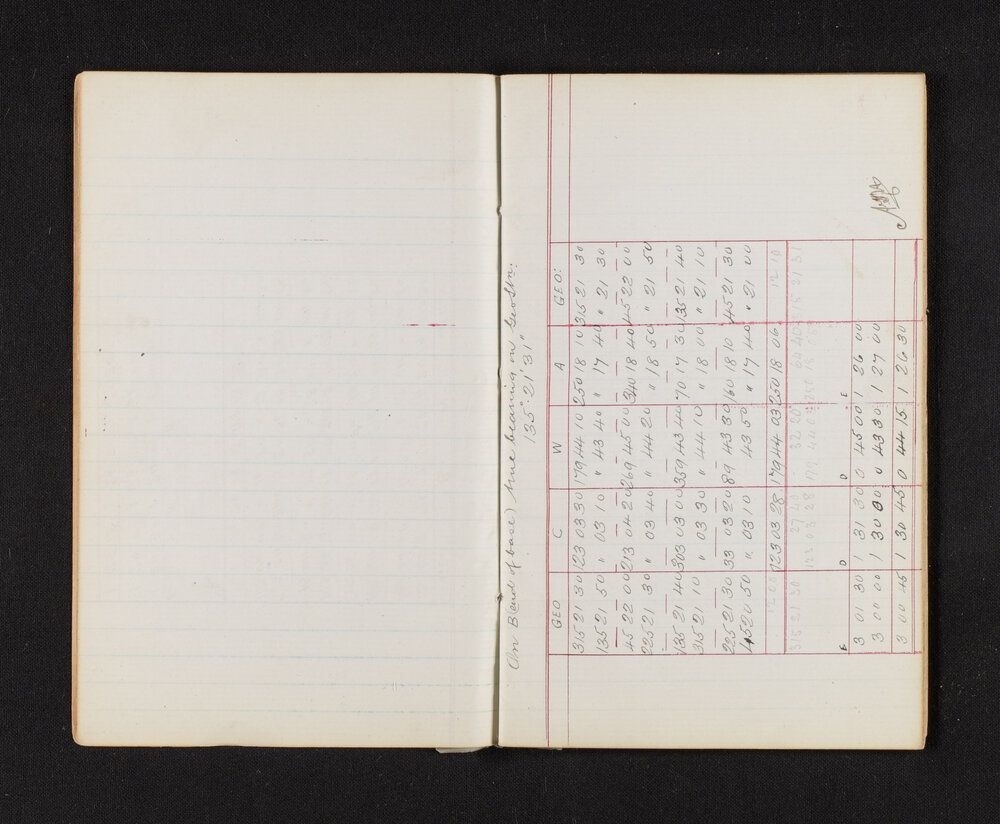 On B (end of base) true bearing on Geo Stn:
135° 21' 31"
GEO C W A GEO:
315 21 30 123 03 30 179 44 10 250 18 10 315 21 30
135 21 50 " 03 10 " 43 40 " 17 40 135 21 30
45 22 00 213 04 20 269 45 00 340 18 40 45 22 00
225 21 30 " 03 40 " 44 20 " 18 50 " 21 50
135 21 40 303 03 00 359 43 40 70 17 30 135 21 40
315 21 10 " 03 30 " 44 10 " 18 00 " 21 10
225 21 30 33 03 20 89 43 30 160 18 10 45 21 30
45 20 50 " 03 10 43 50 " 17 40 " 21 00
123 03 28 179 44 03 250 18 06
12 00 27 40 32 20 12 10
315 21 30 123 03 28 179 44 03 315 21 31
E D D E
3 01 30 1 31 30 0 45 00 1 26 00
3 00 00 1 30 00 0 43 30 1 27 00
3 00 45 1 30 45 0 44 15 1 26 30